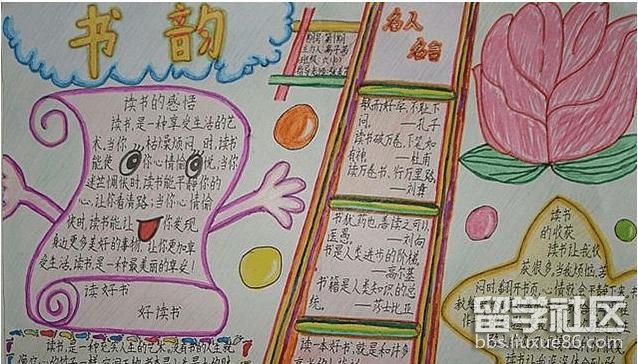 书韵
期号:第1期
名人
名言
读书的感悟
读书,是一种享受生活的艺
术,当你枯燥烦闷时,读书
能使你心情愉悦,当你
迷茫惆怅时,读书能平静你的
心,让你看清路;当你心情愉
快时,读书能让你发现
身边更多美好的事物,让你更加享
受生活,读书是一种最美丽的享受!
读好书
好读书
敏而好学,不耻下
问。
——孔子
读书破万卷,下笔如
有神。——杜甫
读万卷书,行万里路
——刘彝
书犹药也,善读之可以
医愚。——刘向
书是人类进步的阶梯。
——高尔基
书籍是人类知识的总
统。——莎士比亚
读一本好书,就是和许多
读书
的收获
读书让我收
获很多,当我烦恼、苦
留学社区
bbs.liuxue86.com